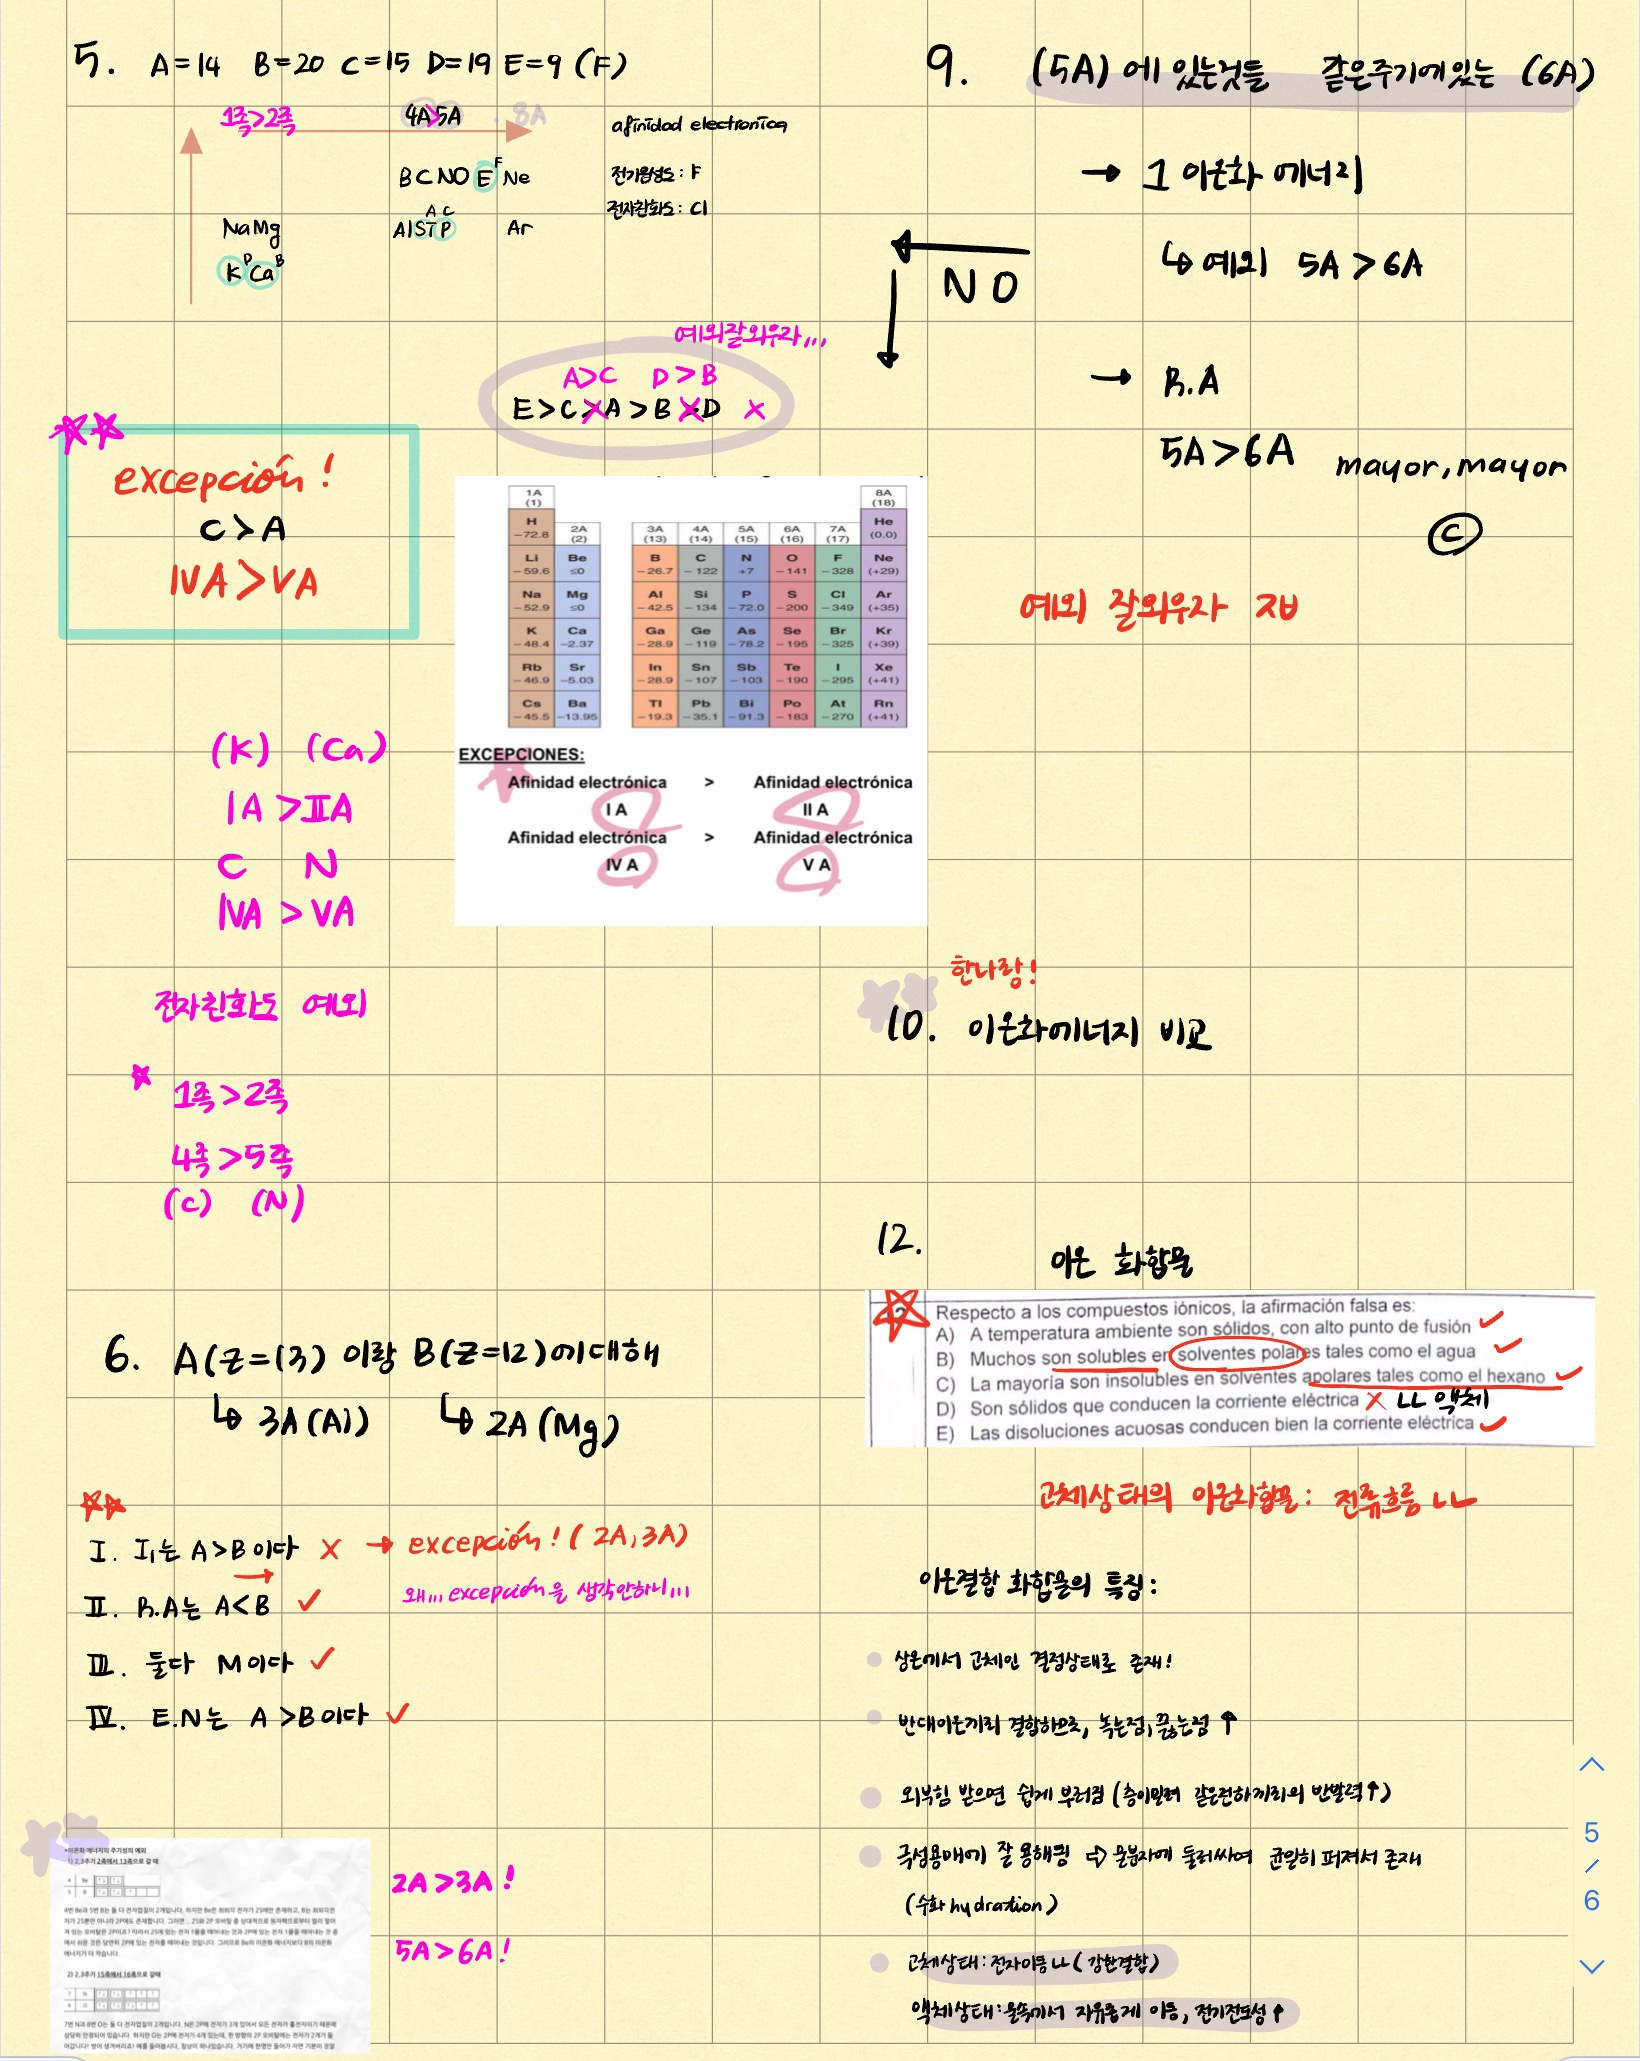 5. A=14 B=20 C=15 D=19 E=9 (F)
1족>2족
4A>5A
8A
afinidad electronica
B C N O E F Ne
전기음성도: F
전자친화도: Cl
A C
Na Mg
Al Si P Ar
D B
K Ca
예외잘외우자...
A>C D>B
E>C>A>B>D X
excepción!
C>A
IVA>VA
1A (1)
8A (18)
H -72.8
2A (2)
3A (13) 4A (14) 5A (15) 6A (16) 7A (17)
He (0.0)
Li -59.6 Be ≤0 B -26.7 C -122 N +7 O -141 F -328 Ne (+29)
Na -52.9 Mg ≤0 Al -42.5 Si -134 P -72.0 S -200 Cl -349 Ar (+35)
K -48.4 Ca -2.37 Ga -28.9 Ge -119 As -78.2 Se -195 Br -325 Kr (+39)
Rb -46.9 Sr -5.03 In -28.9 Sn -107 Sb -103 Te -190 I -295 Xe (+41)
Cs -45.5 Ba -13.95 Tl -19.3 Pb -35.1 Bi -91.3 Po -183 At -270 Rn (+41)
EXCEPCIONES:
Afinidad electrónica > Afinidad electrónica
I A II A
Afinidad electrónica > Afinidad electrónica
IV A V A
(K) (Ca)
IA >ⅡA
C N
IVA > VA
전자친화도 예외
1족>2족
4족>5족
(C) (N)
6. A(Z=13) 이랑 B(Z=12)에대해
↳ 3A(Al) ↳ 2A(Mg)
I. I₁는 A>B이다 X → excepción! (2A,3A)
왜... excepción을 생각안하니...
II. R.A는 A<B
III. 둘다 M이다
IV. E.N는 A>B이다
•이온화 에너지의 주기성의 예외
1) 2,3주기 2족에서 13족으로 갈 때
4 Be
5 B
2) 2,3주기 15족에서 16족으로 갈때
7 N
8 O
2A>3A!
5A>6A!
9. (5A)에 있는것들 같은주기에있는 (6A)
→ 1 이온화 에너지
↳ 예외 5A>6A
NO
→ R.A
5A>6A mayor, mayor
C
예외 잘외우자 ㅈㅂ
한나랑!
10. 이온화에너지 비교
12. 이온 화합물
Respecto a los compuestos iónicos, la afirmación falsa es:
A) A temperatura ambiente son sólidos, con alto punto de fusión
B) Muchos son solubles en solventes polares tales como el agua
C) La mayoría son insolubles en solventes apolares tales como el hexano
D) Son sólidos que conducen la corriente eléctrica X ㄴㄴ 액체
E) Las disoluciones acuosas conducen bien la corriente eléctrica
고체상태의 이온화합물: 전류흐름 ㄴㄴ
이온결합 화합물의 특징:
상온에서 고체인 결정상태로 존재!
반대이온끼리 결합하므로, 녹는점, 끓는점 ↑
외부힘 받으면 쉽게 부러짐 (층이밀려 같은전하끼리의 반발력↑)
극성용매에 잘 용해됨 ⇨ 물분자에 둘러싸여 균일히 퍼져서 존재
(수화 hydration)
고체상태: 전자이동ㄴㄴ (강한결합)
액체상태: 물속에서 자유롭게 이동, 전기전도성↑
5
/
6